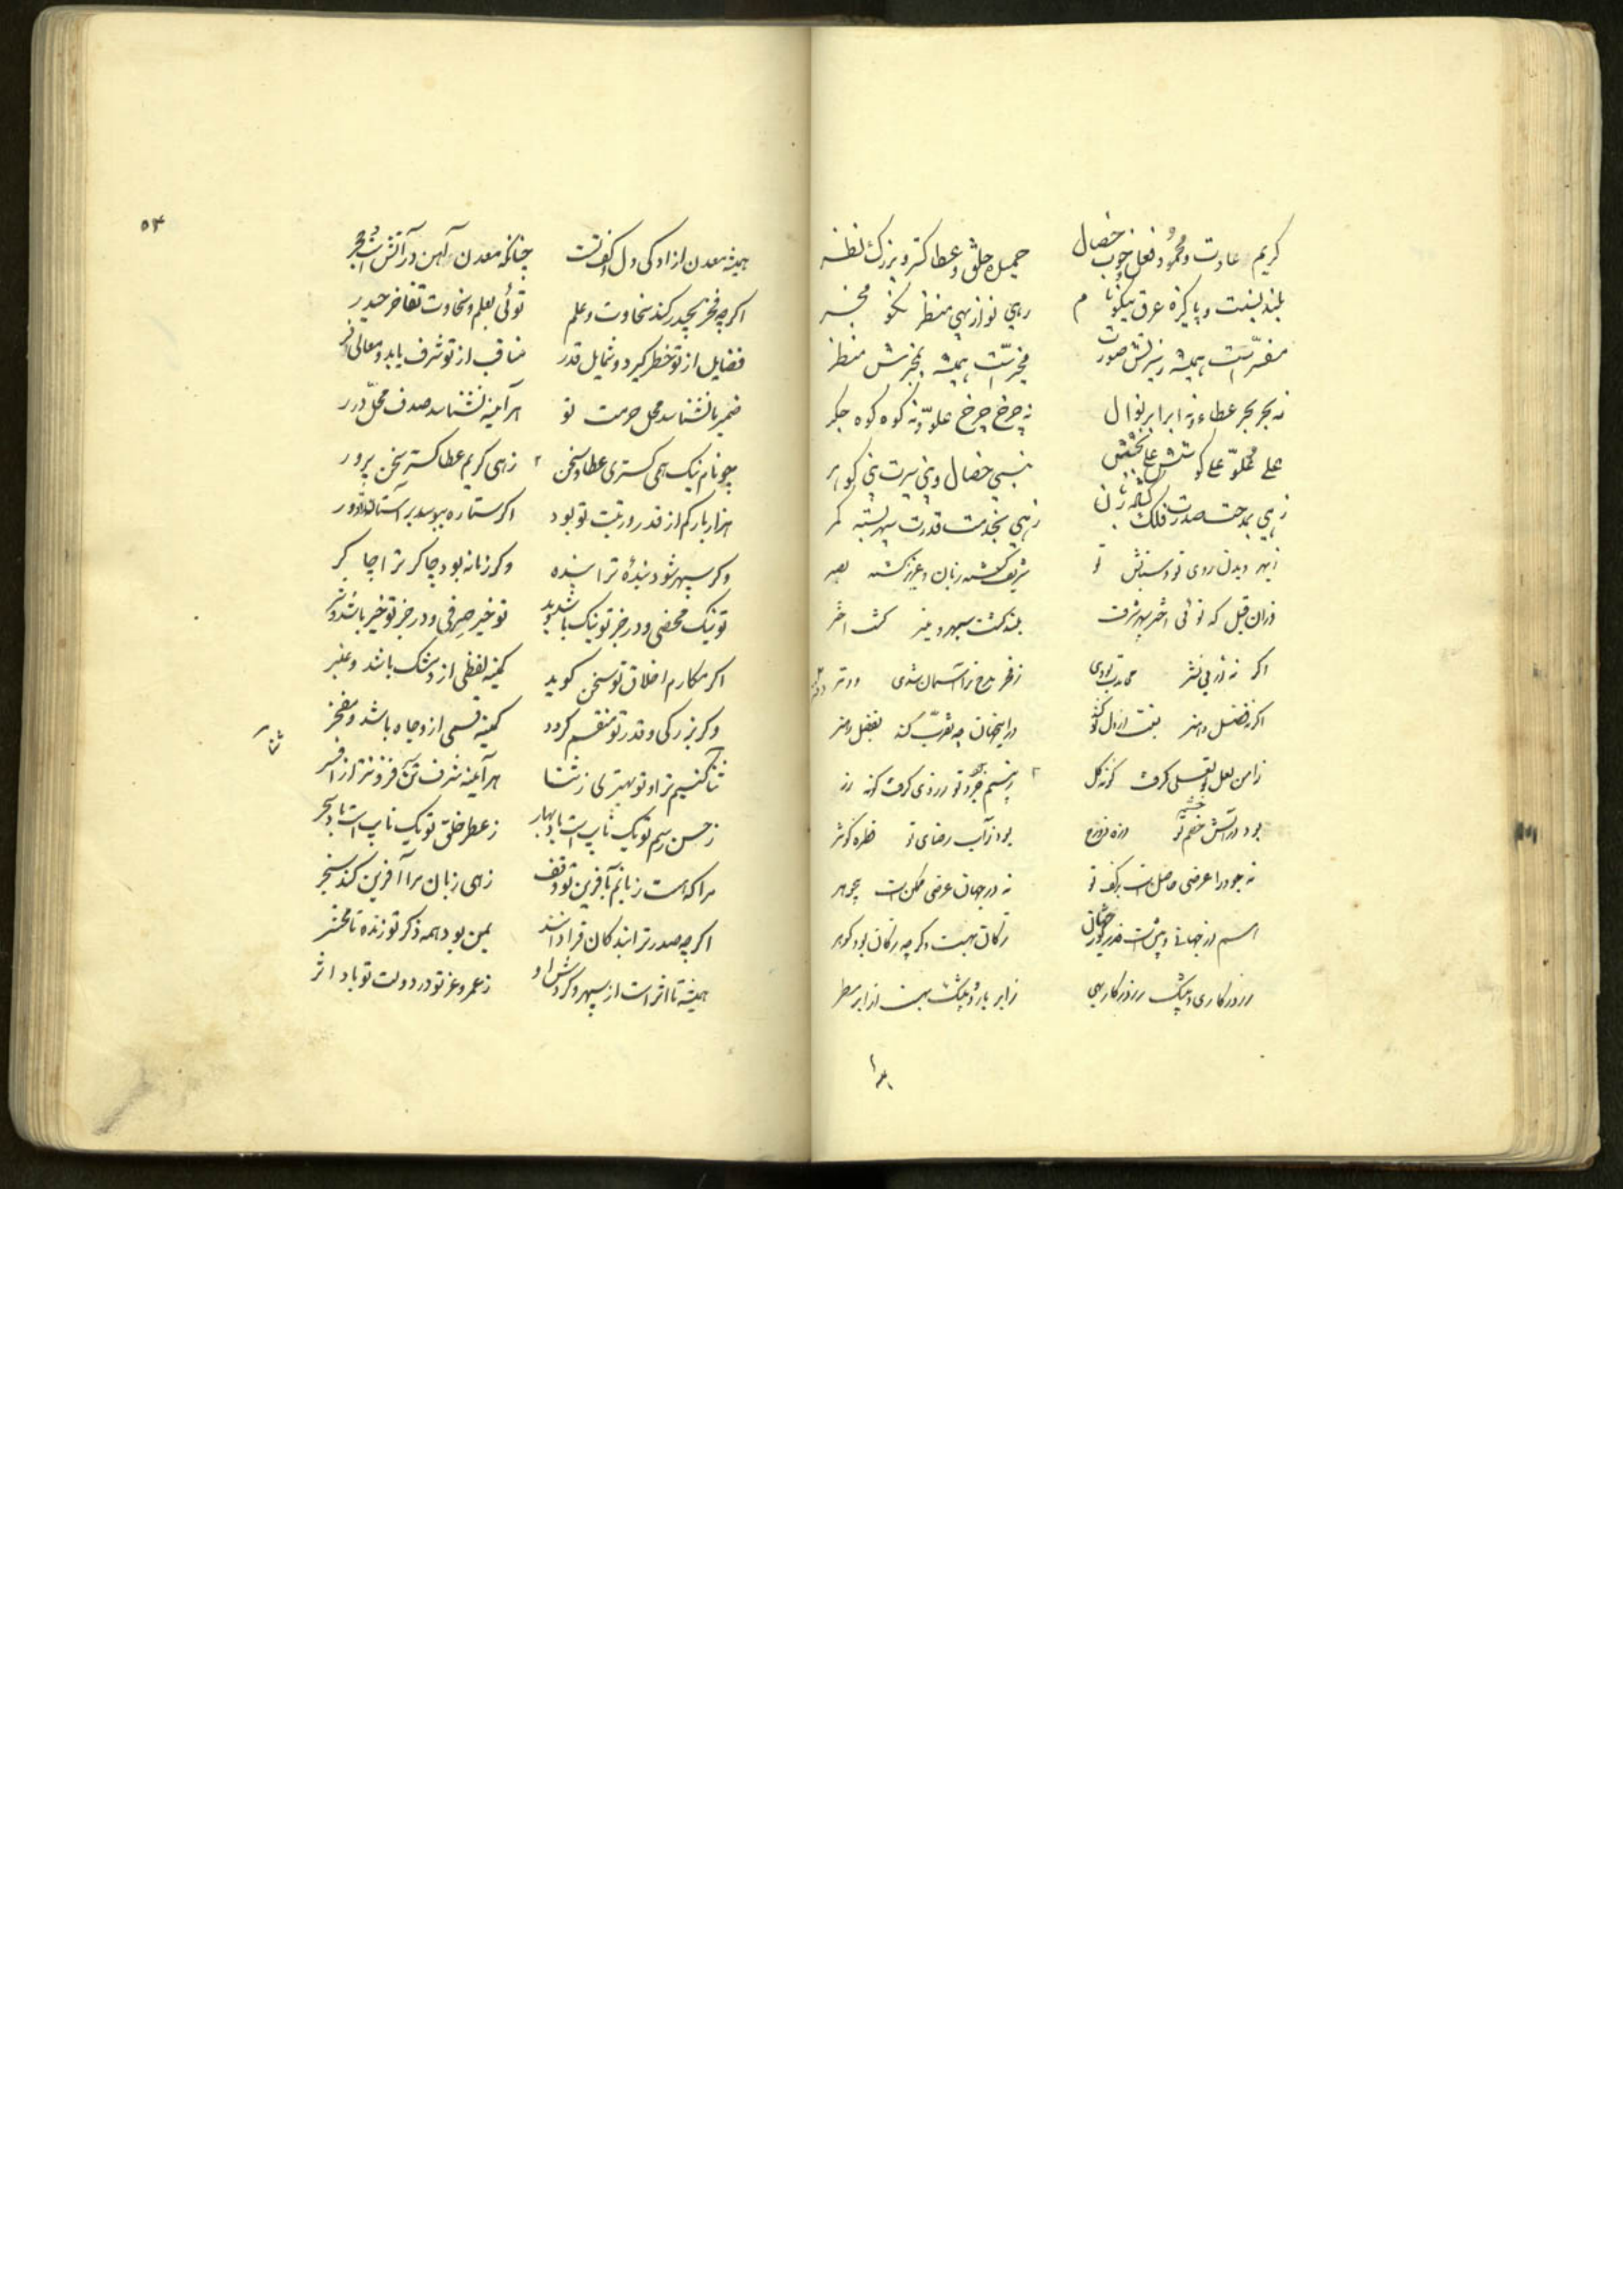 کریم عادت و محمود فعل و خوب خصال جمیل خلق و عطا کستر و بزرک نظر
بلند نسبت و پاکیزه عرق نیکو نام رهی نواز بهی منظر نکو مخبر
مفسرست همیشه ز سرش صورت مخبرست همیشه بمخبرش منظر
نه بحر بحر عطاء و نه ابر ابر نوال نه چرخ چرخ علو و نه کوه کوه جکر
علی علو علی کوشش علی بخشش نبی خصال و نبی سیرت نبی کوهر
زهی بمدحت صدرت فلک کشاده زبان زهی بخدمت قدرت سپهر بسته کمر
ز بهر دیدن روی تو و ستایش تو شریف کشته زبان و عزیز کشته بصر
ازان قبل که توئی اختر سپهر شرف بلند کشت سپهر و منیر کشت اختر
اکر نه از پی نشر محامدت بودی ز فخر مدح ترا آسمان شدی دفتر
اکر بفضل و هنر
زامن لعل تو لعلی کرفت کونه کل ز بیم جود تو زردی کرفت کونه زر
بود در آتش خشم تو ذره دوزخ بود ز آب رضای تو قطره کوثر
نه جود را عرضی حاصل است بی کف تو نه در جهان عرضی ممکن است بی جوهر
هم از جهانی و بیش است قدر تو ز جهان ز کان بهست وکر چه ز کان بود کوهر
ز روزکاری و بیشک ز روزکار بهی ز ابر بارد و بیشک بهست از ابر مطر
۵۳
همیشه معدن ازادکی دل و کف تست چنانکه معدن آهن در آتش است و حجر
اکر چه فخر بحیدر کند سخاوت و علم توئی بعلم و سخاوت تفاخر حیدر
فضایل از تو خطر کیرد و شمایل قدر مناقب از تو شرف یابد و معالی فر
ضمیر ما نشناسد محل حرمت تو هر آینه نشناسد صدف محل درر
چو نام نیک همی کستری عطا و سخن زهی کریم عطا کستر سخن پرور
هزار بار کم از قدر و رتبت تو بود اکر ستاره ببوسد بر آستانه و در
وکر سپهر شود بندهٔ ترا بنده وکر زمانه بود چاکر ترا چاکر
تو نیک محضی و در جز تو نیک باشد و بد تو خیر صرفی و در جز تو خیر باشد و شر
اکر مکارم اخلاق تو سخن کوید کمینه لفظی ازو مشک باشد و عنبر
وکر بزرکی و قدر تو منقسم کردد کمینه قسمی ازو جاه باشد و مفخر
ثنا کنیم ترا و تو بهتری ز ثنا هر آینه شرف تن فزونتر از افسر
ز حسن رسم تو یک تاب است با بهار ز عطر خلق تو یک تاب است باد سحر
مرا که هست زبانم بآفرین تو وقف زهی زبان مرا آفرین کند سنجر
اکر چه صدر ترا بندکان فراوانند بمن بود همه ذکر تو زنده تا محشر
همیشه تا اثر است از سپهر و کردش او ز عمر و عز تو در دولت تو باد اثر